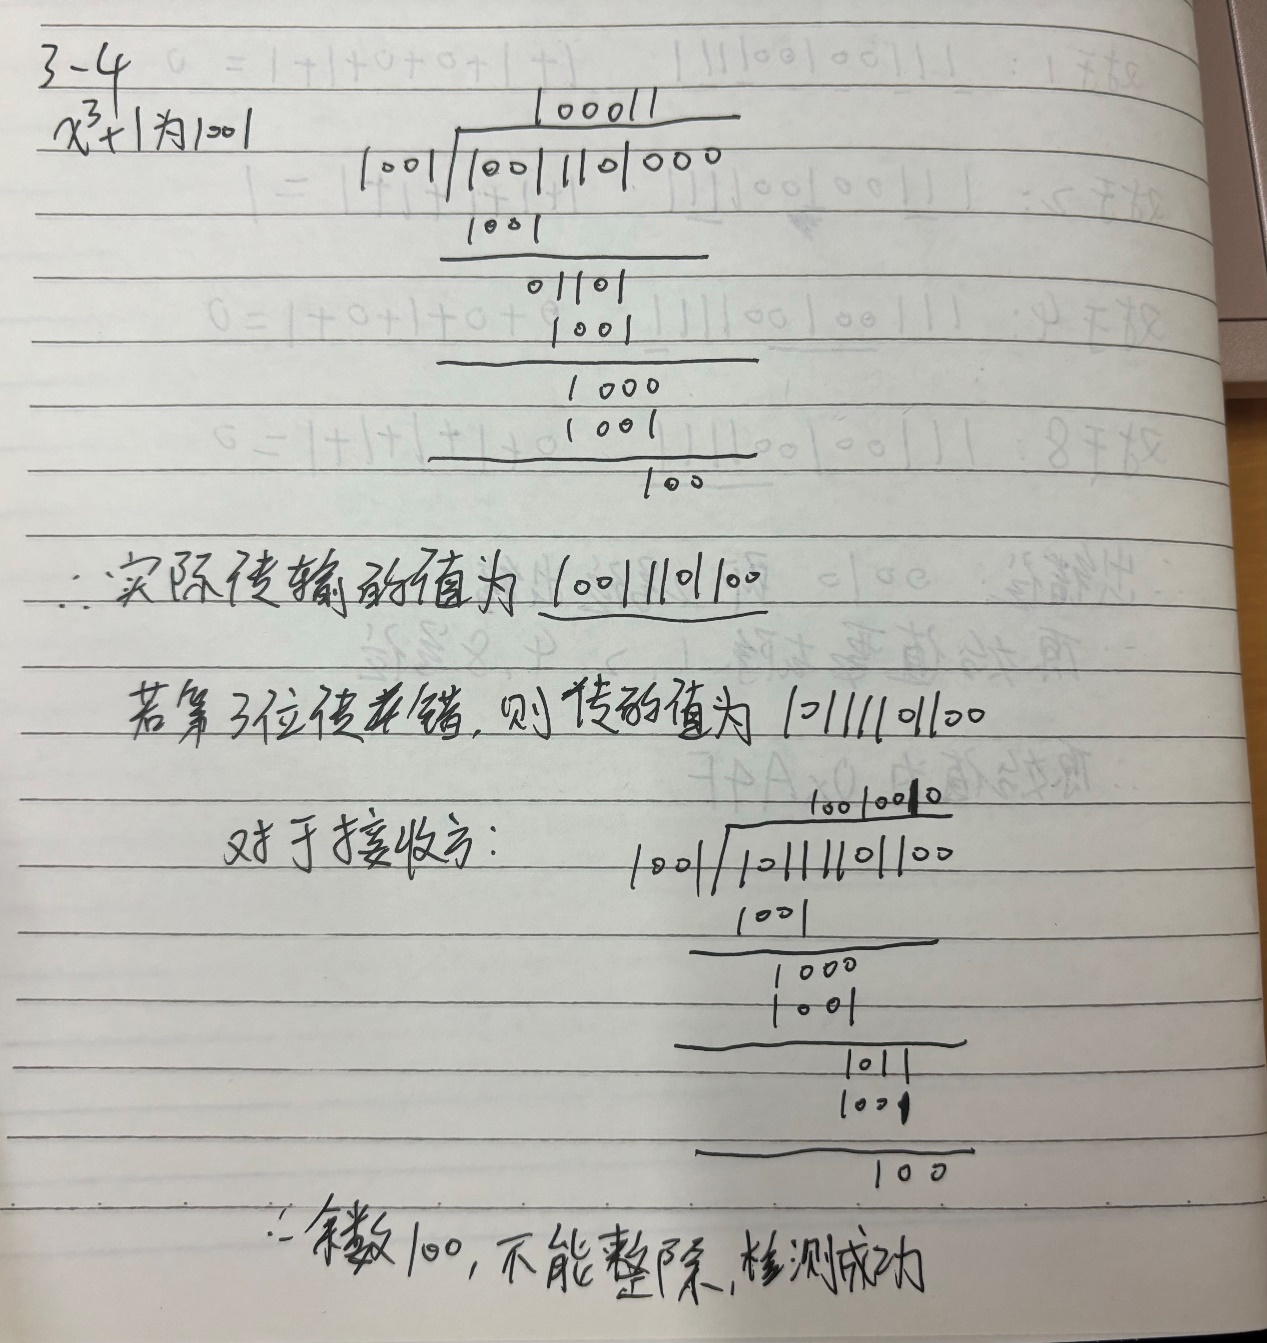 3-4
x³+1为1001
100011
1001 10011101000
1001
01101
1001
1000
1001
100
∴实际传输的值为 10011101100
若第3位传错,则传的值为 10111101100
对于接收方:
10010010
1001 10111101100
1001
1000
1001
1011
1001
100
∴余数100,不能整除,检测成功